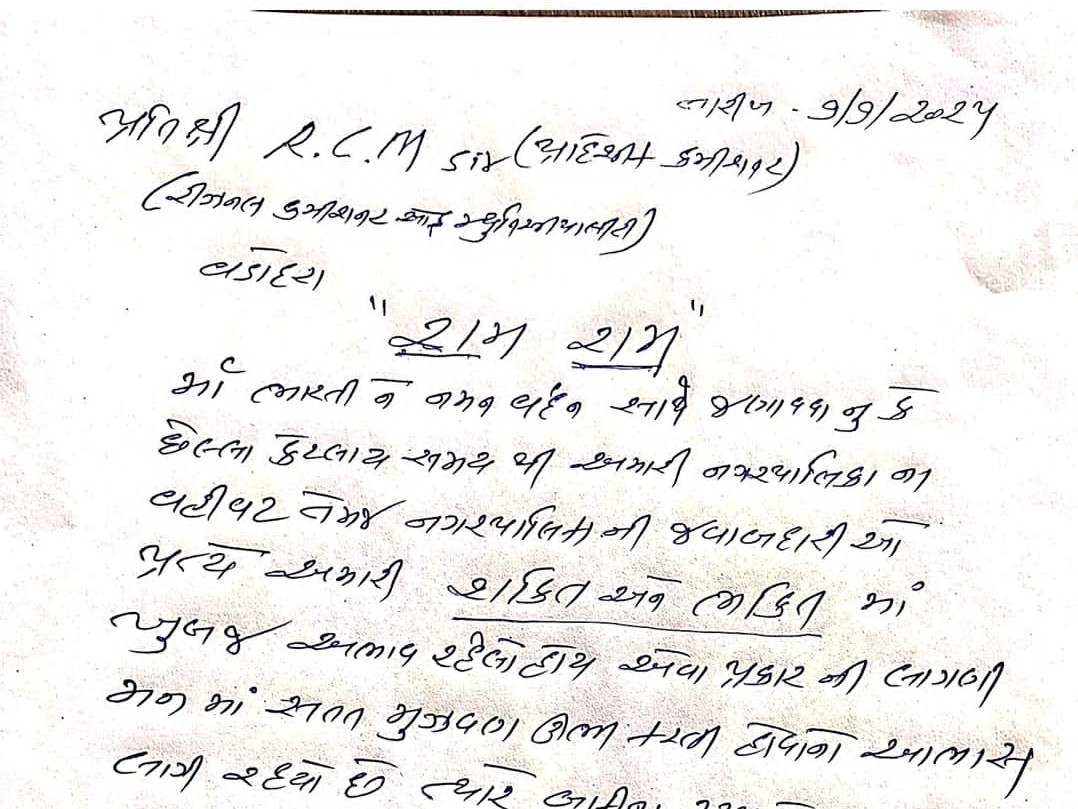 તારીખ - ૭/૭/૨૦૨૫
પ્રતિશ્રી R.C.M સર (પ્રાદેશિક કમીશનર)
(રીજનલ કમીશનર ઓફ મ્યુનિસીપાલીટી)
વડોદરા
"રામ રામ"
માઁ ભારતી ને નમન વંદન સાથે જણાવવા નુ કે
છેલ્લા કેટલાય સમય થી અમારી નગરપાલિકા ના
વહીવટ તેમજ નગરપાલિકા ની જવાબદારી ઓ
પ્રત્યે અમારી શક્તિ અને ભક્તિ માં
ખુબજ અભાવ રહેલો હોય એવા પ્રકાર ની લાગણી
મન માં સતત મુઝવણ ઊભી કરતી હોવાનો આભાસ
લાગી રહયો છે ત્યારે